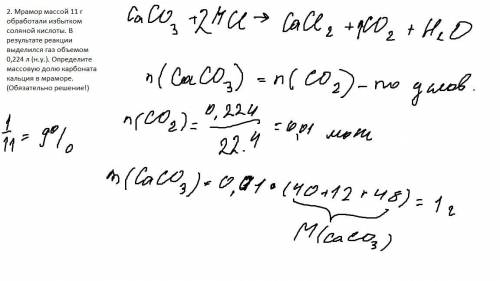 2. Мрамор массой 11 г
обработали избытком
соляной кислоты. В
результате реакции
выделился газ объемом
0,224 л (н.у.). Определите
массовую долю карбоната
кальция в мраморе.
(Обязательно решение!)
CaCO3 + 2HCl → CaCl2 + 1CO2 + H2O
n(CaCO3) = n(CO2) – по услов.
n(CO2) = 0,224/22.4 = 0,01 моль
m(CaCO3) = 0,01 • (40+12+48) = 1 г
M(CaCO3)
1/11 = 9%